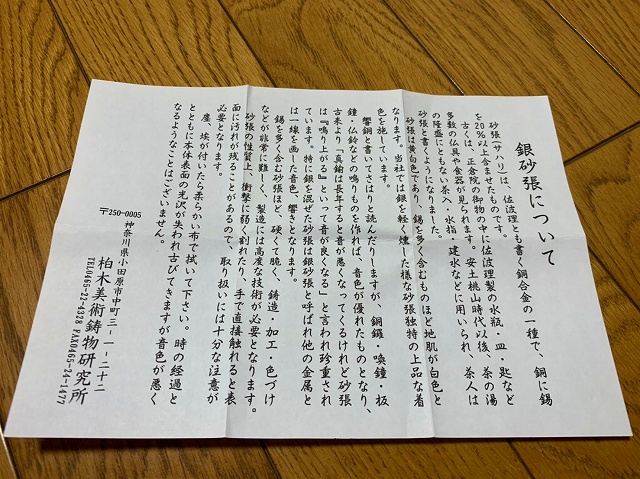 銀砂張について
砂張(サハリ)は、佐波理とも書く銅合金の一種で、銅に錫
を20%以上含ませたものです。
古くは、正倉院の御物の中に佐波理製の水瓶・皿・匙など
多数の仏具や食器が見られます。安土桃山時代以後、茶の湯
の隆盛にともない茶入・水指・建水などに用いられ、茶人は
砂張と書くようになりました。
砂張は黄白色であり、錫を多く含むものほど地肌が白色と
なります。当社では銀を軽く燻した様な砂張独特の上品な着
色を施しています。
響銅と書いてさはりと読んだりしますが、銅鑼・喚鐘・板
鐘・仏鈴などの鳴りものを作れば、音色が優れたものとなり、
古来より「真鍮は長年すると音が悪くなってくるけれど砂張
は『鳴り上がる』といって音が良くなる」と言われ珍重され
ています。特に銀を混ぜた砂張は銀砂張と呼ばれ他の金属と
は一線を画した音色、響きとなります。
錫を多く含む砂張ほど、硬くて脆く、鋳造・加工・色づけ
などが非常に難しく、製造には高度な技術が必要となります。
砂張の性質上、衝撃に弱く割れたり、手で直接触れると表
面に汚れが残ることがあるので、取り扱いには十分な注意が
必要となります。
塵、埃が付いたら柔らかい布で拭いて下さい。時の経過と
ともに本体表面の光沢が失われ古びてきますが音色が悪く
なるようなことはございません。
〒250-0005 神奈川県小田原市中町三-一-二十二
柏木美術鋳物研究所
TEL0465-22-4328 FAX0465-24-1477